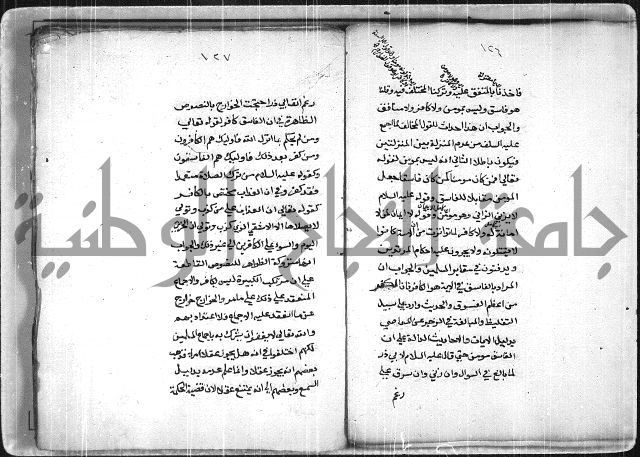 ١٢٦
فاخذنا بالمتفق عليه وتركنا المختلف فيه وقلنا
هو فاسق وليس بمومن ولا كافر ولا منافق
والجواب ان هذا احداث للقول المخالف لما اجمع
عليه السلف من عدم المنزلة بين المنزلتين
فيكون باطلا الثاني انه ليس بمومن لقوله
تعالى افمن كان مومنا كمن كان فاسقا جعل
المومن مقابلا للفاسق وقوله عليه السلام
لا يزني الزاني وهو مومن وقوله لا ايمان لمن لا
امانة له ولا كافر لما تواترت من ان الامة كانوا
لا يقتلونه ولا يجرون عليه احكام المرتدين
ويدفنون في مقابر المسلمين والجواب ان
المراد بالفاسق في الاية هو الكافر فان الكفر
من اعظم الفسوق والحديث وارد على سبيل
التغليظ والمبالغة في الزجر عن المعاصي
بدليل الايات والاحاديث الدالة على ان
الفاسق مومن حتى قال عليه السلام لابي ذر
لما بالغ في السوال وان زنى وان سرق على
رغم
١٢٧
رغم انف ابي ذر احتجت الخوارج بالنصوص
الظاهرة في ان الفاسق كافر لقوله تعالى
ومن لم يحكم بما انزل الله فاوليك هم الكافرون
ومن كفر بعد ذلك فاوليك هم الفاسقون
وكقوله عليه السلام من ترك الصلاة متعمدا
فقد كفر وفي ان العذاب مختص بالكافر
كقوله تعالى ان العذاب على من كذب وتولى
لا يصلاها الا الاشقى الذي كذب وتولى ان الخزي
اليوم والسوء على الكافرين الى غير ذلك والجواب
انها متروكة الظاهر للنصوص القاطعة
على ان مرتكب الكبيرة ليس بكافر والاجماع
المنعقد على ذلك على ما مر والخوارج خوارج
عن ما انعقد عليه الاجماع فلا اعتداد بهم
والله تعالى لا يغفر ان يشرك به باجماع المسلمين
لكنهم اختلفوا في انه هل يجوز عقلا ام لا فذهب
بعضهم انه يجوز عقلا وانما علم عدمه بدليل
السمع وبعضهم الى انه يمتنع عقلا لان قضية الحكمة
جامعة النجاح الوطنية